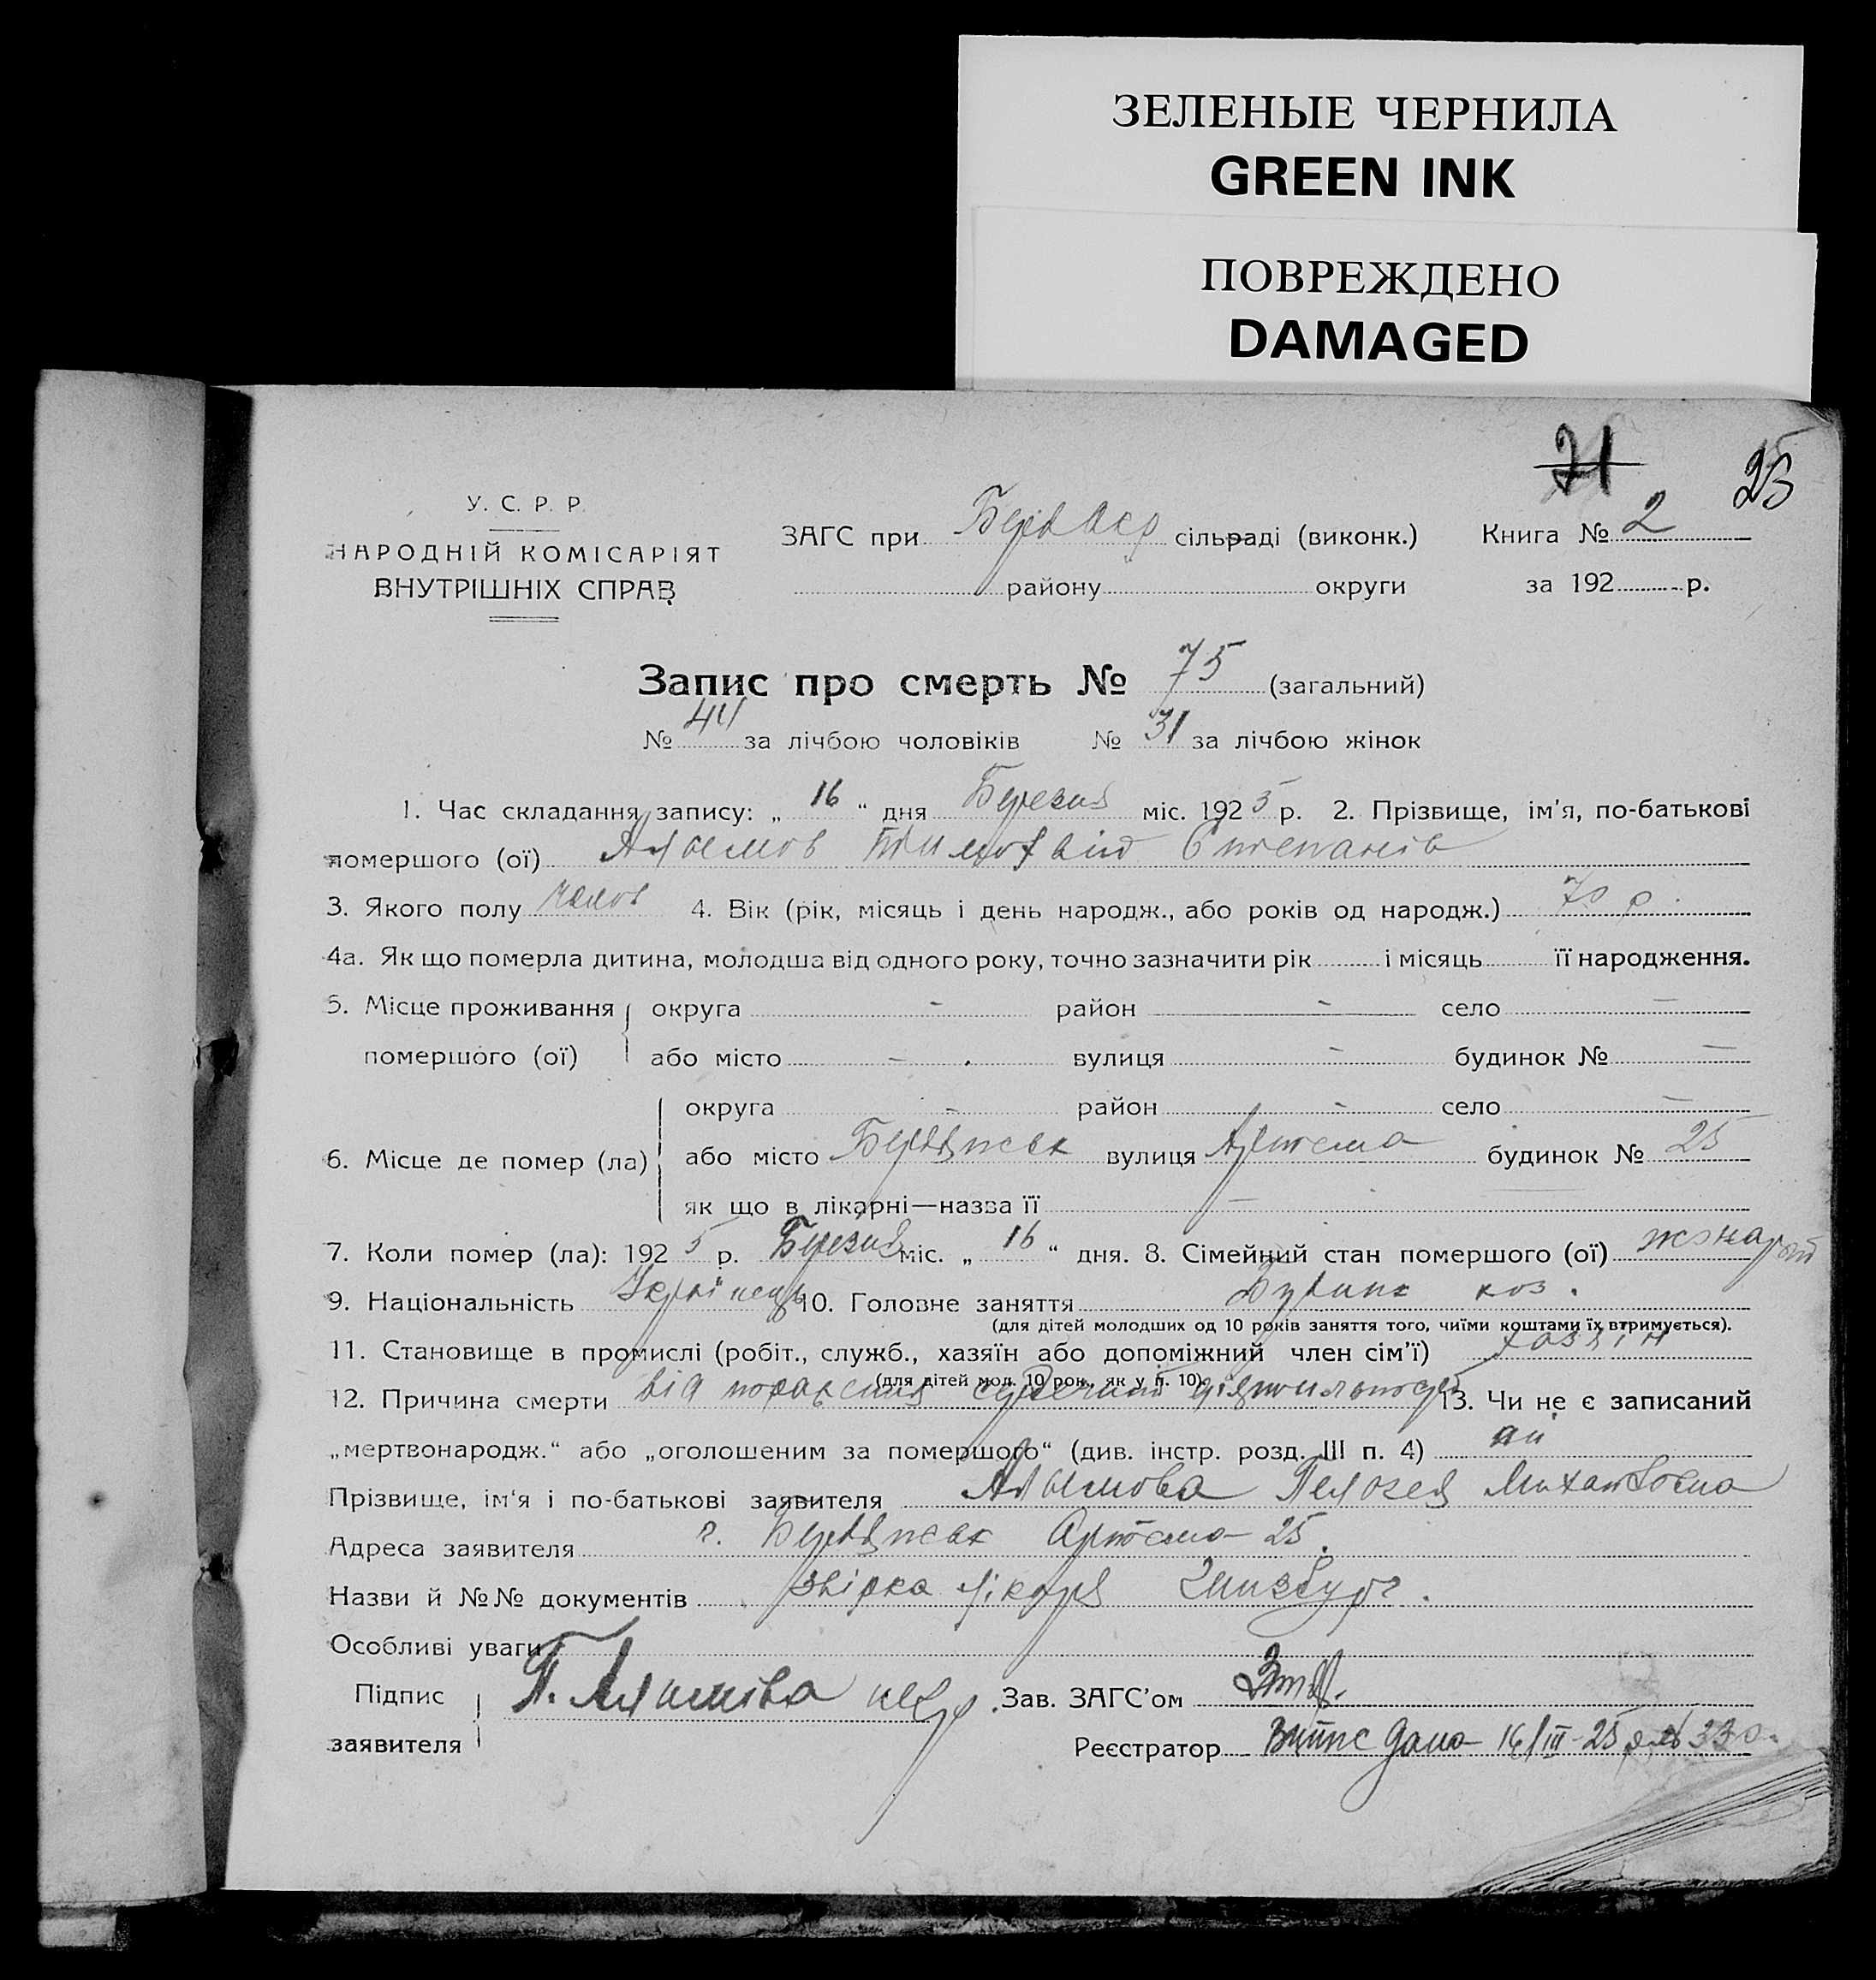 ЗЕЛЕНЫЕ ЧЕРНИЛА
GREEN INK
ПОВРЕЖДЕНО
DAMAGED
21 25
У. С. Р. Р.
НАРОДНІЙ КОМІСАРІЯТ
ВНУТРІШНІХ СПРАВ
ЗАГС при сільраді (виконк.) Книга № 2
району округи за 192 р.
Запис про смерть № 75 (загальний)
№ 44 за лічбою чоловіків № 31 за лічбою жінок
1. Час складання запису: „ 16 “ дня Березня міс. 1925 р. 2. Прізвище, ім'я, по-батькові
помершого (ої) Степанів
3. Якого полу чолов 4. Вік (рік, місяць і день народж., або років од народж.) 70 р.
4а. Як що померла дитина, молодша від одного року, точно зазначити рік і місяць її народження.
5. Місце проживання округа - район - село -
помершого (ої) або місто - вулиця - будинок № -
округа - район - село -
6. Місце де помер (ла) або місто Бердянськ вулиця Артема будинок № 25
як що в лікарні—назва її -
7. Коли помер (ла): 1925 р. Березня міс. „ 16 “ дня. 8. Сімейний стан помершого (ої)
9. Національність Українець 10. Головне заняття
(для дітей молодших од 10 років заняття того, чиїми коштами їх втримується).
11. Становище в промислі (робіт., служб., хазяїн або допоміжний член сім'ї) хазяїн
(для дітей мол. 10 рок., як у п. 10).
12. Причина смерти від 13. Чи не є записаний
„мертвонародж.“ або „оголошеним за помершого“ (див. інстр. розд. III п. 4) ні
Прізвище, ім'я і по-батькові заявителя Михайловна
Адреса заявителя г. Бердянськ Артема 25.
Назви й №№ документів лікаря Гинзбург.
Особливі уваги
Підпис П. Зав. ЗАГС'ом
заявителя Реєстратор дана 16/III-25